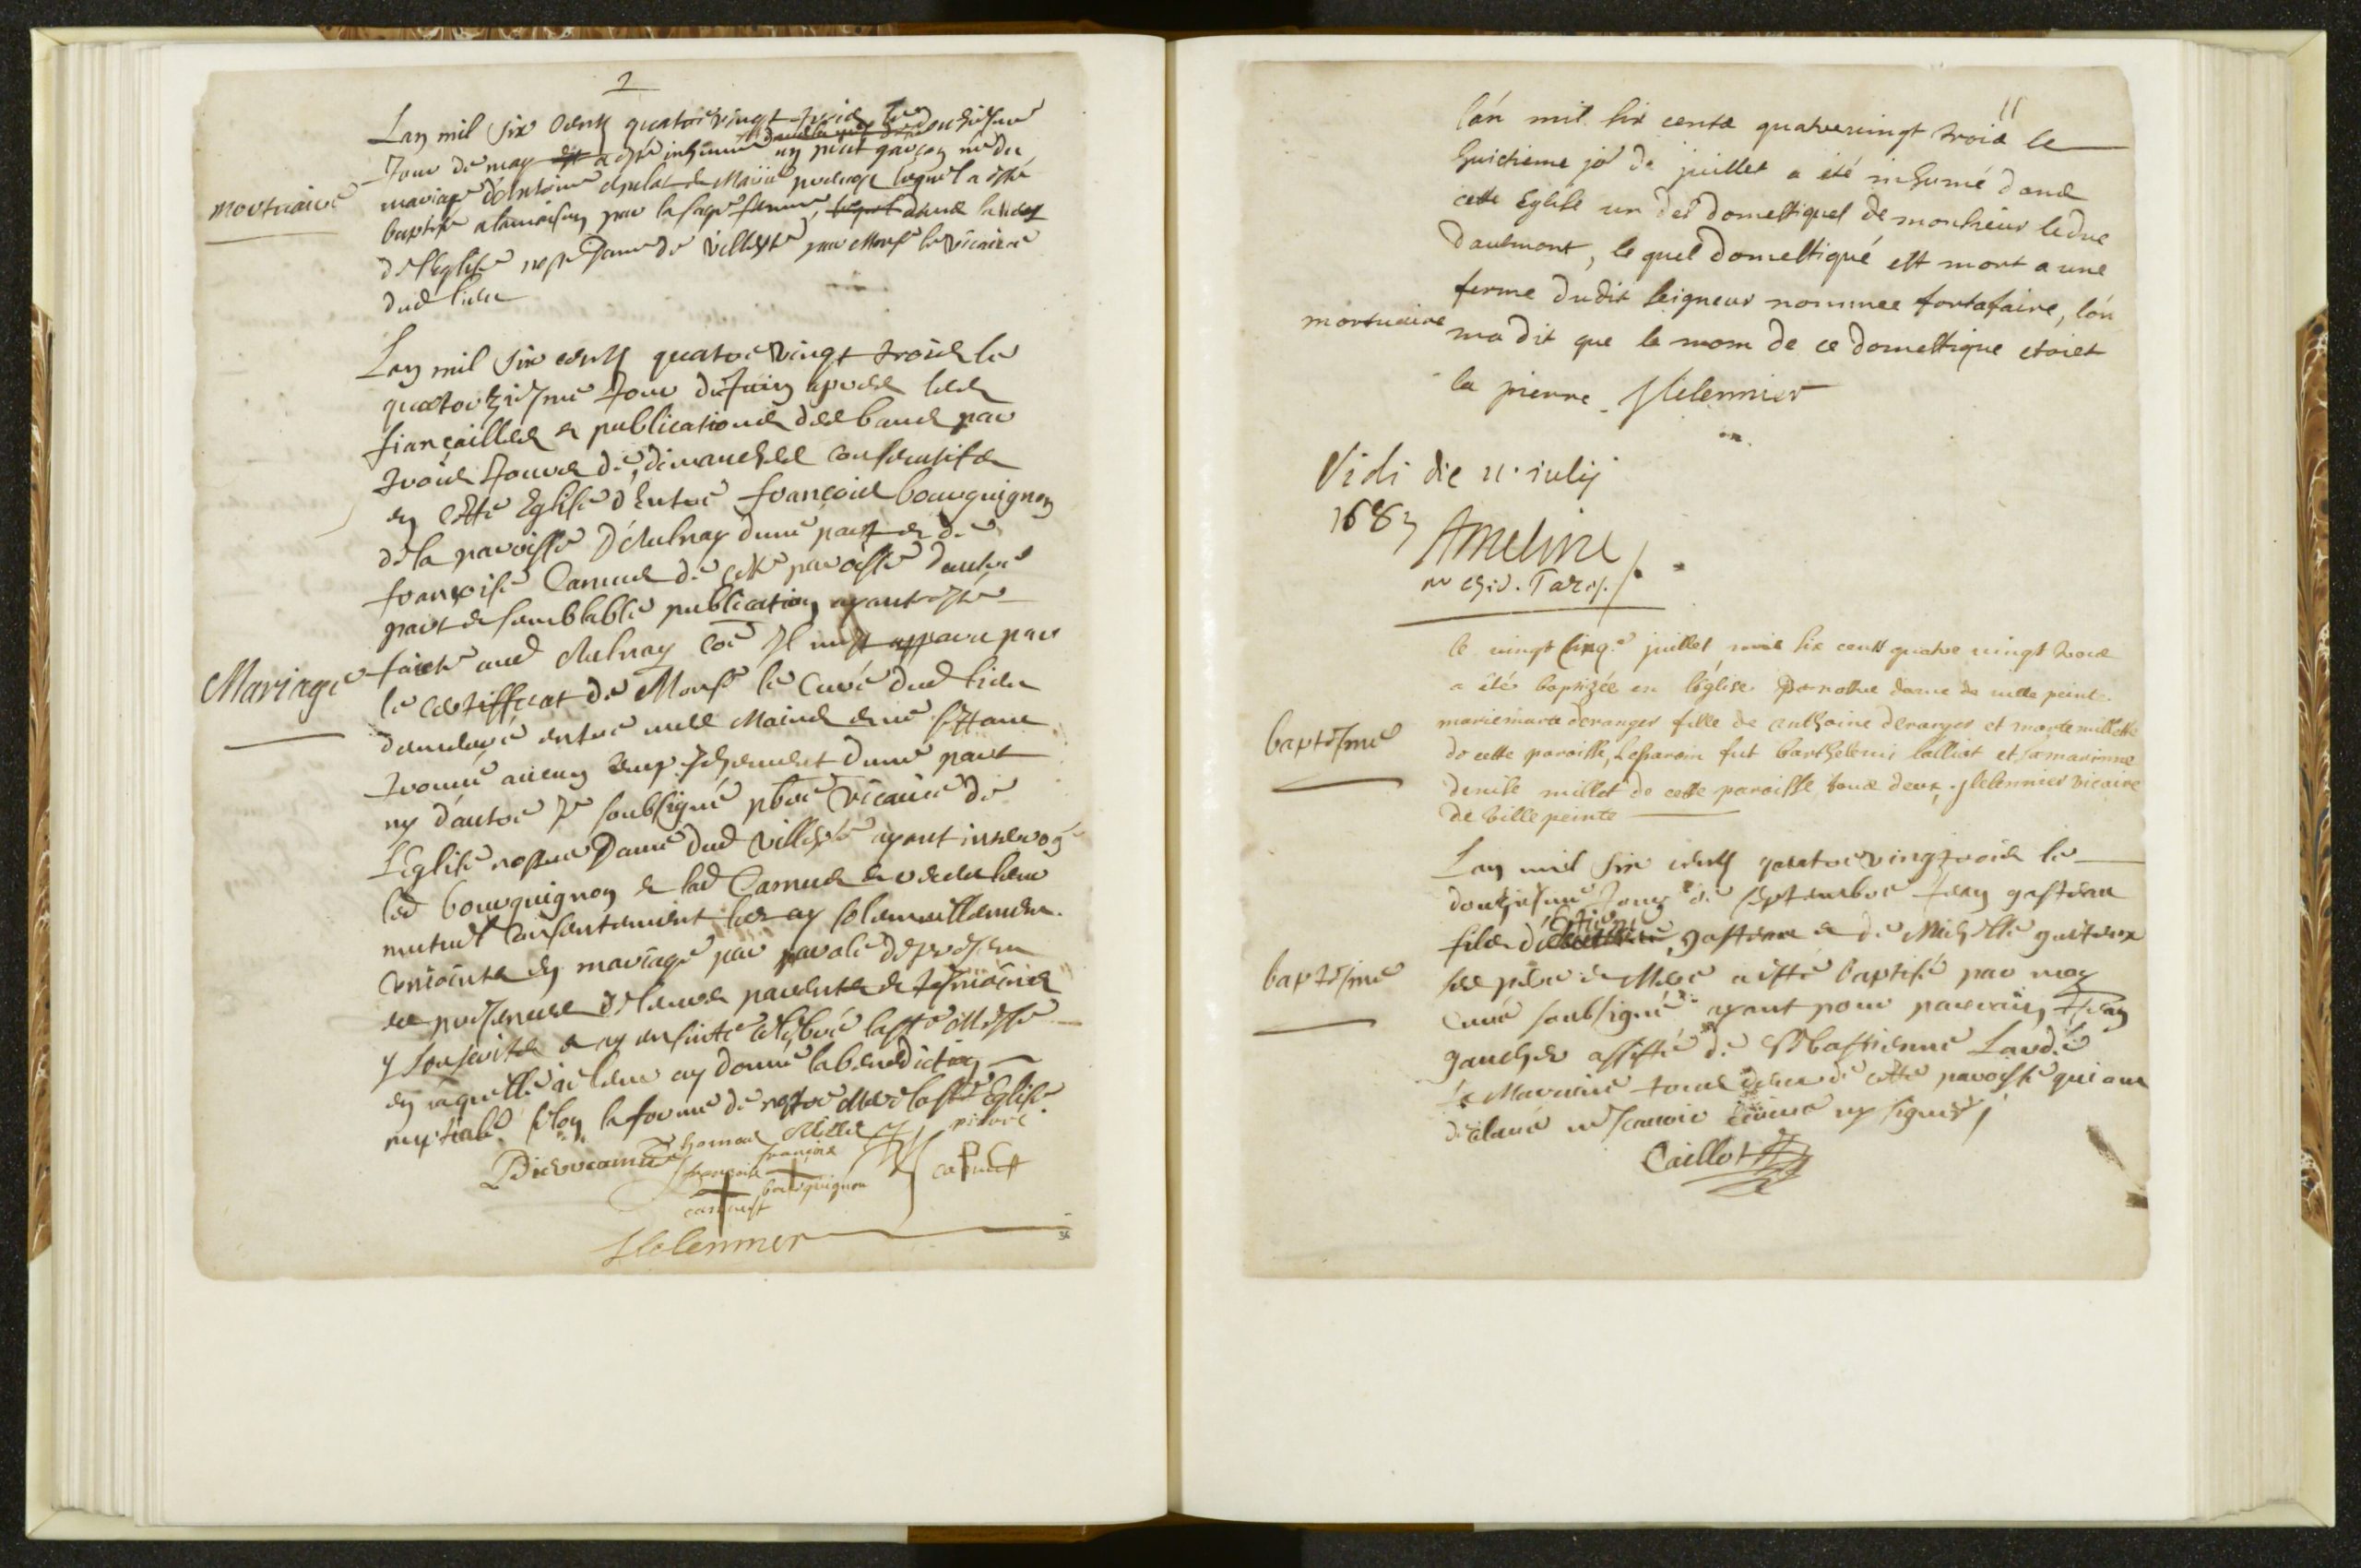 2
Lan mil six cents quatrevingt trois le onziesme
Jour de may a esté inhumé un petit garçon né du
mortuaire
mariage d'Antoine et de Marie lequel a esté
baptisé a la maison par la sage femme, lequel dans la nef
de l'Eglise nostre Dame de Villepte par Monsr le vicaire
dud lieu
Lan mil six cents quatrevingt trois le
quatorziesme Jour de Juin apres les
fiançailles et publications des bans par
trois Jours de dimanches consecutifs
en cette Eglise d'Entre françois bourguignon
de la paroisse d'Aulnay dune part et de
françoise Camus de cette paroisse dautre
part et semblable publication ayant esté
Mariage
faicte aud Aulnay coe Il mest apparu par
le certifficat de Monsr le Curé dud lieu
demeuré entre mes Mains et ne sestant
trouvé aucun empeschement dune part
ny d'autre Je soubsigné pbre vicaire de
L'Eglise nostre Dame dud Villepte ayant interrogé
led bourguignon et lad Camus et receu leur
mutuel consentement les ay solemnellement
conioints en mariage par parole de present
en presence de leurs parents et tesmoins
y souscrits et ay ensuitte celebré la ste Messe
en laquelle je leur ay donné la benediction
nuptiale selon la forme de nostre Mere la ste Eglise
Thomas Millet pierre
françoise françois
bourguignon camust
camust
Jlelennier
36
11
l'an mil six cents quatrevingt trois le
huictieme jor de juillet a été inhumé dans
cette Eglise un des domestiques de monsieur le duc
daumont, le quel domestique est mort a une
ferme dudit seigneur nommee fortafaire, l'on
mortuaire
ma dit que le nom de ce domestique etoiet
la pierre. Jlelennier
Vidi die 11. iulij
1683 Ameline
ar chid. Paris.
le vingt cinq.e juillet mil six cents quatre vingt trois
a été baptizée en l'église de notre dame de ville peinte
baptesme
marie marte deranger fille de anthoine deranger et marte millette
de cette paroisse, Le parain fut barthelemi lalliat et sa marinne
denise millet de cette paroisse tous deux. Jlelennier vicaire
de ville peinte
Lan mil six cents quatre vingt trois le
douziesme Jour de septembre Jean gasteau
fils d'Estienne gasteau et de Michelle gasteau
baptesme
ses pere et Mere a esté baptisé par moy
Curé soubsigné ayant pour parrain Jean
gaucher assisté de Sebastienne Lardé
sa Marraine tous deux de cette paroisse qui ont
declaré ne scavoir escrire ny signer
Caillot